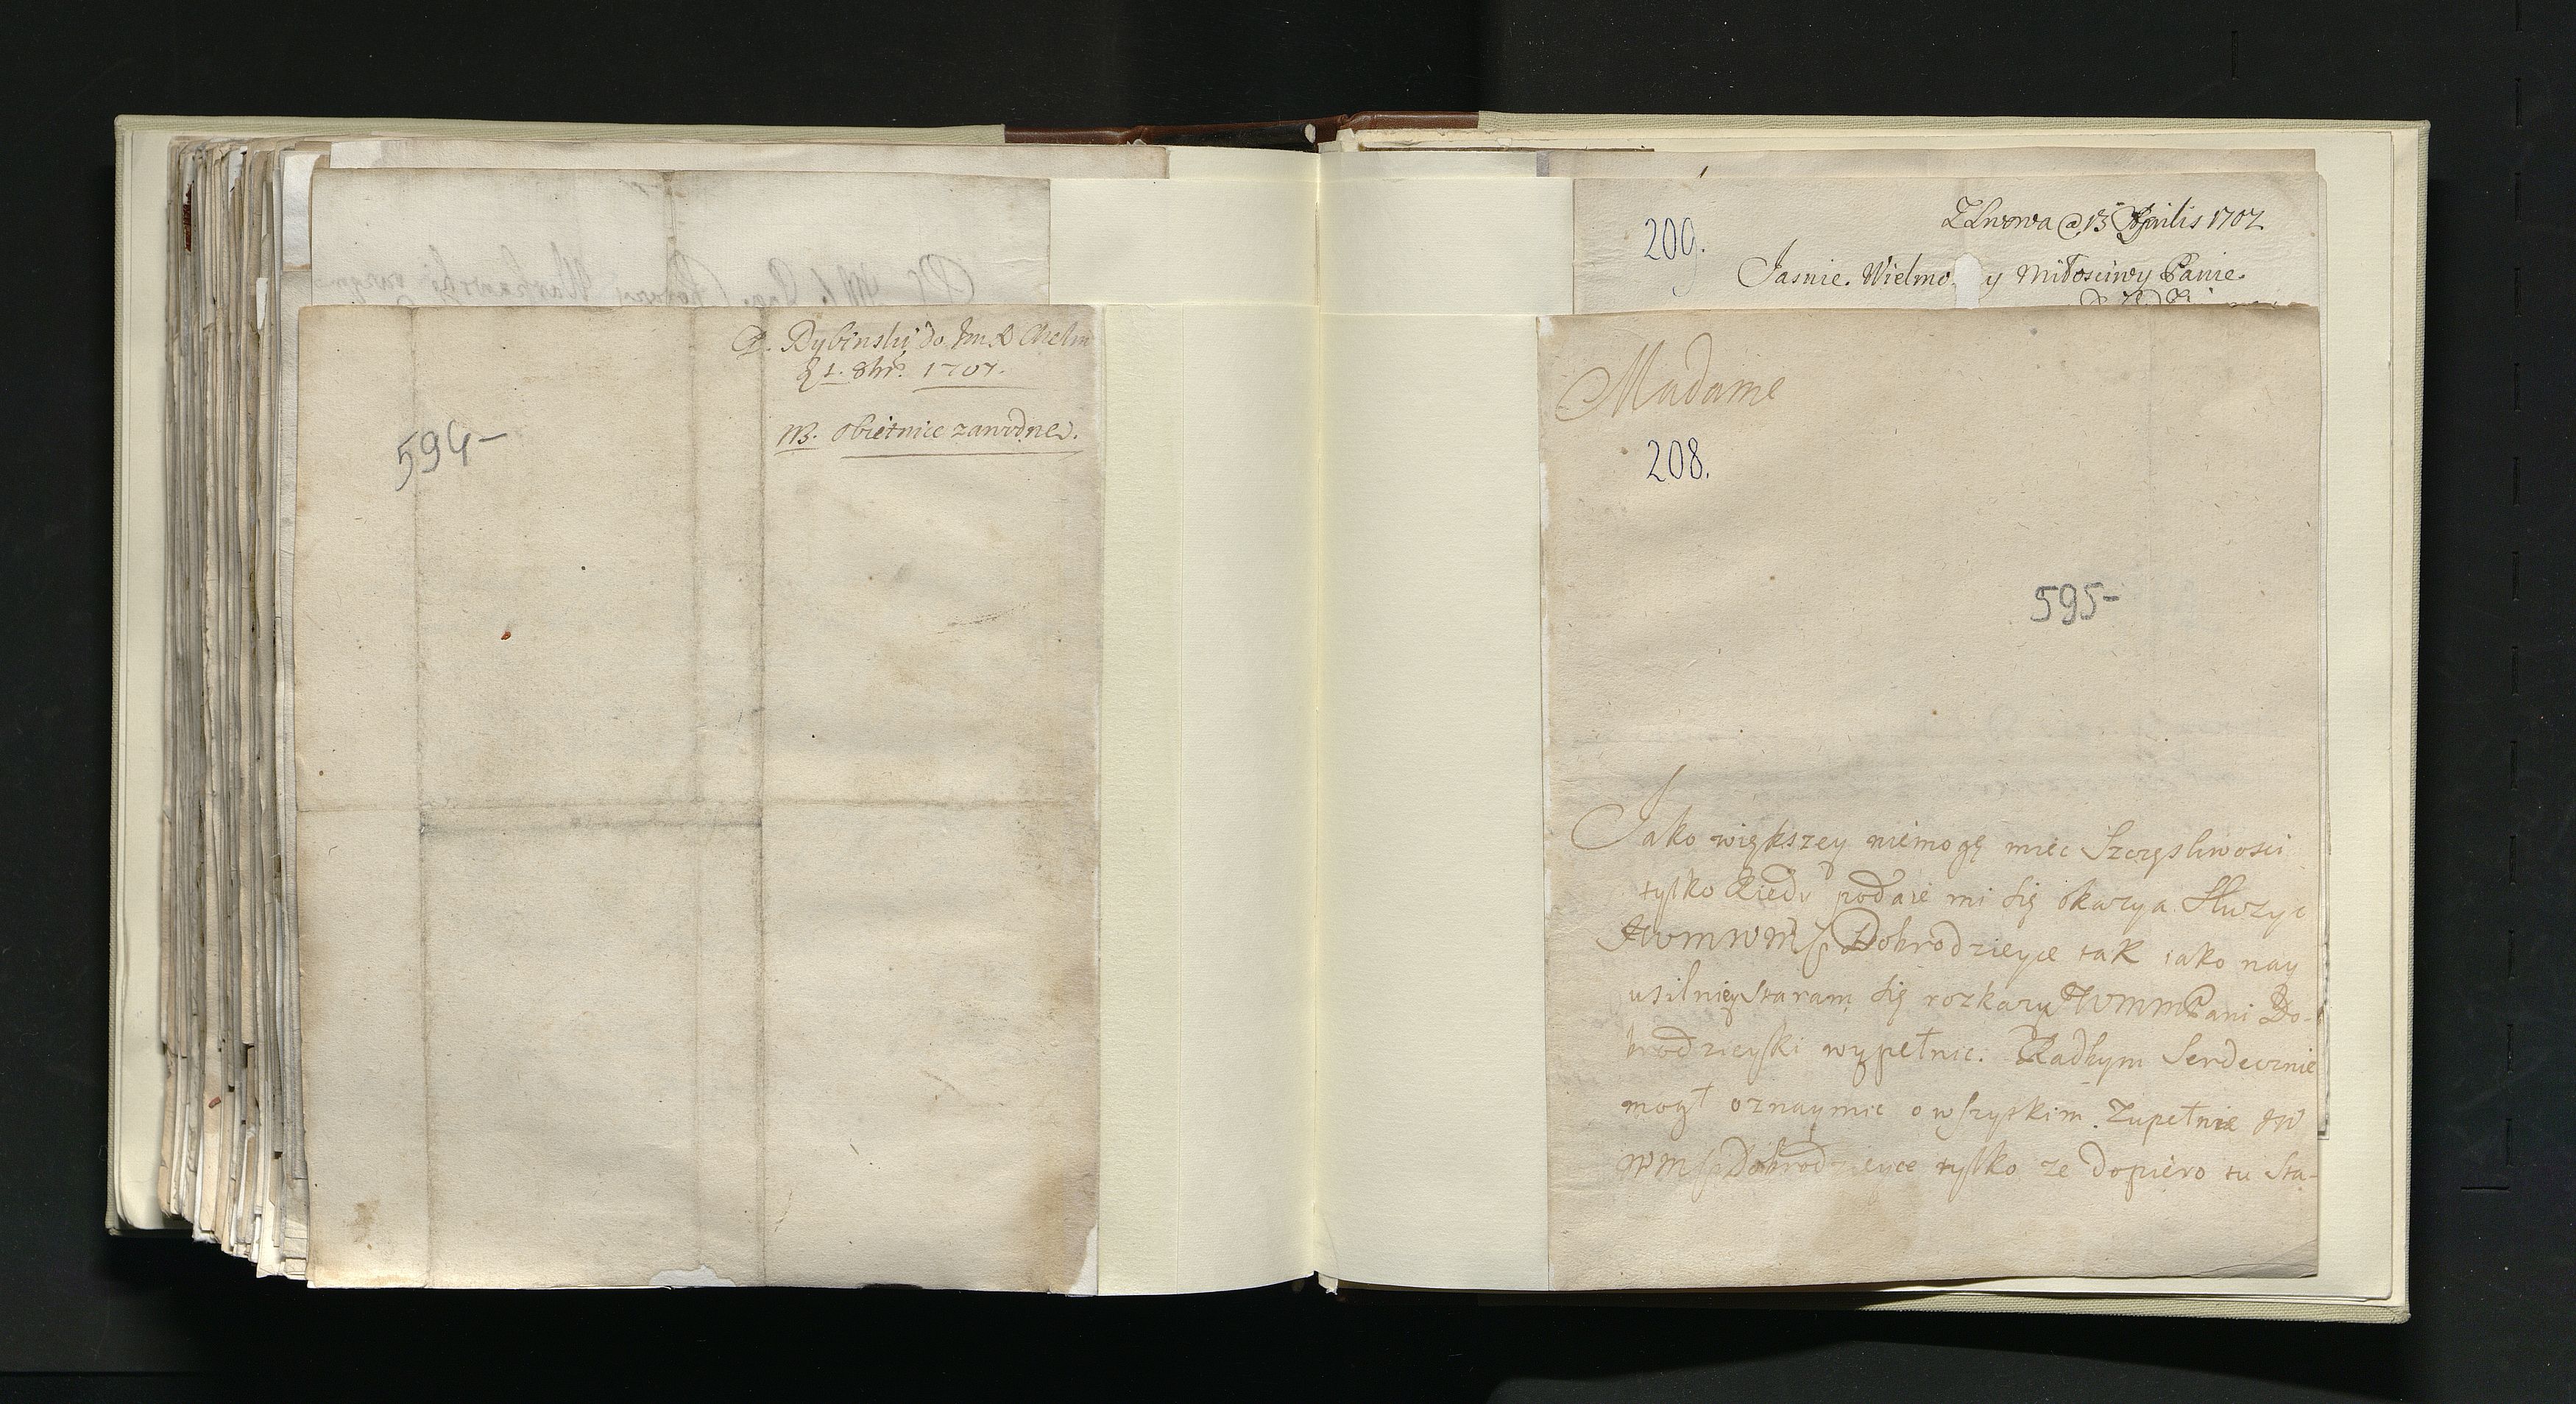 P. Rybinski do Jm P. Chełm
1. 8br. 1707.
NB. obietnice zawodne.
594-
Z Lwowa 13 Aprilis 1707
209.
Jasnie Wielmo y Miłosciwy Panie
Madame
208.
595-
Jako większey niemogę miec Szczęsliwosci
tylko kiedy podaie mi się okazya Służyc
Dobrodzieyce tak iako nay
usilniey staram się rozkazy JWMMPani Do-
brodzieyski wypełnic. Radbym Serdecznie
mogł oznaymic o wszytkim Zupełnie JW
Dobrodzieyce tylko ze dopiero tu sta-